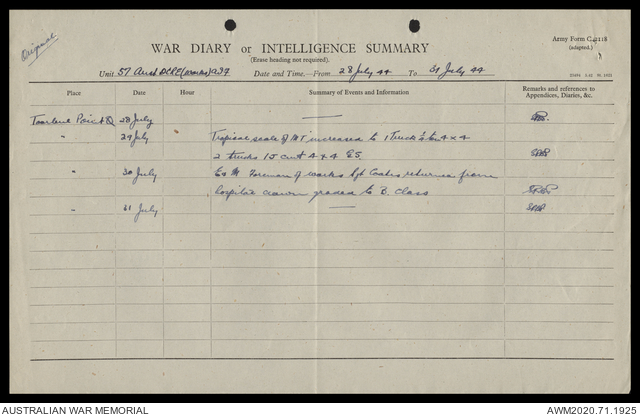 Original
Army Form C.2118
(adapted.)
WAR DIARY or INTELLIGENCE SUMMARY
(Erase heading not required).
Unit 57 Aust DCRE (Works) Date and Time.—From 28 July 44 To 31 July 44
Place Date Hour Summary of Events and Information Remarks and references to
Appendices, Diaries, &c.
28 July —
" 29 July Tropical scale of MT increased to 1 Truck 4 x 4
2 trucks 15 cwt 4 x 4 GS.
" 30 July Foreman of works Sgt Coates returned from
hospital down graded to B. Class
" 31 July —
AUSTRALIAN WAR MEMORIAL
AWM2020.71.1925